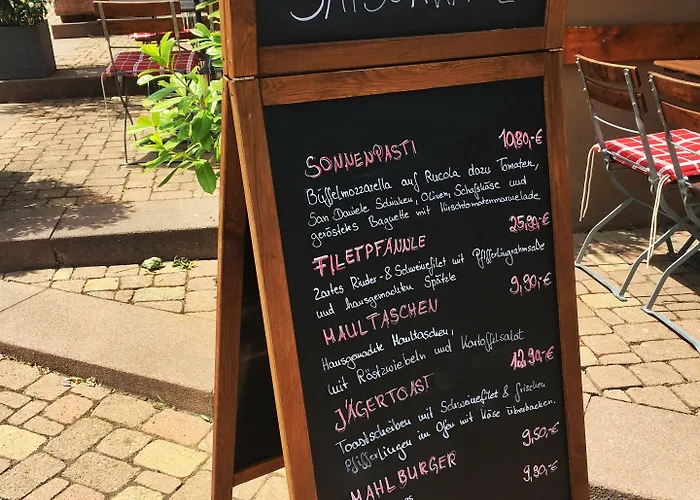 SONNENPASTI 10,80,-€
Büffelmozzarella auf Rucola dazu Tomaten,
San Daniele Schinken, Oliven, Schafskäse und
geröstetes Baguette mit Kirschtomatenmarmelade
FILETPFÄNNLE 25,90,-€
Zartes Rinder- & Schweinefilet mit Pfifferlingrahmsoße
und hausgemachten Spätzle
MAULTASCHEN 9,90,-€
Hausgemachte Maultaschen,
mit Röstzwiebeln und Kartoffelsalat
JÄGERTOAST 12,90,-€
Toastscheiben mit Schweinefilet & frischen
Pfifferlingen im Ofen mit Käse überbacken.
9,50,-€
MAHLBURGER 9,90,-€